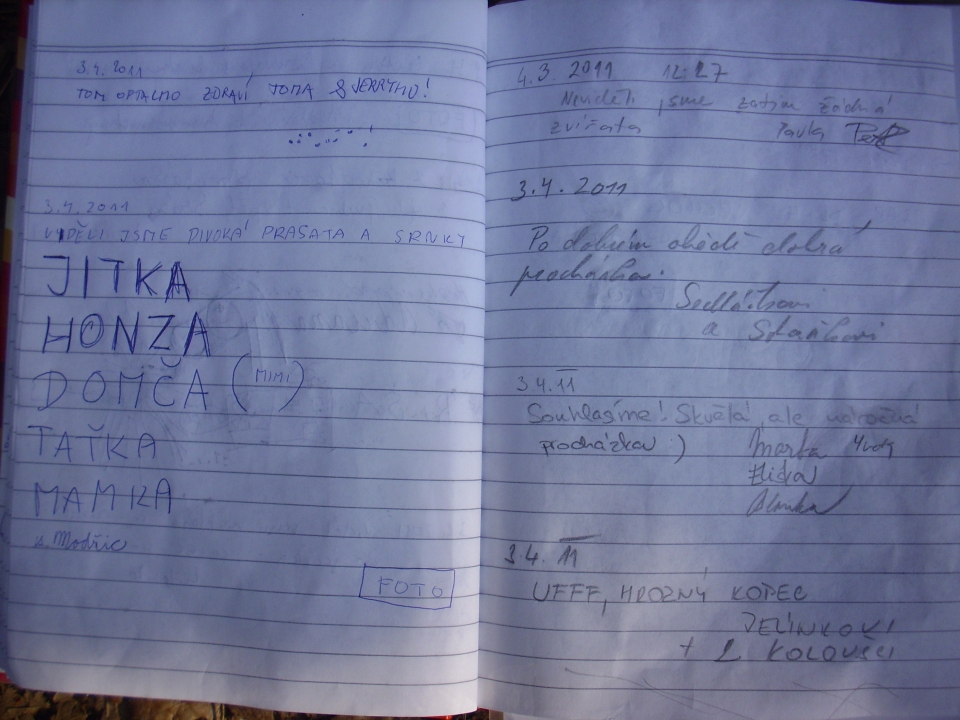 3.4.2011
TOM OPTALMO ZDRAVÍ TOMA & JERRYHO!
3.4.2011
VIDĚLI JSME DIVOKÁ PRASATA A SRNKY
JITKA
HONZA
DOMČA (MIMI)
TAŤKA
MAMKA
z Modřic
FOTO
4.3.2011 12:27
Neviděli jsme zatím žádná
zvířata Pavla
3.4.2011
Po dobrém obědě dobrá
procházka.
Sedláčkovi
a
3.4.11
Souhlasíme! Skvělá, ale náročná
procházka :)
Eliška
Blanka
3.4.11
UFFF, HROZNÝ KOPEC
JELÍNKOVI
+ 2 KOLOUŠCI